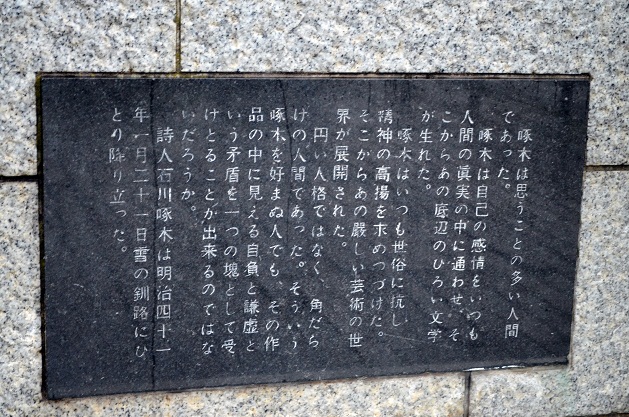 啄木は思うことの多い人間
であった。
啄木は自己の感情をいつも
人間の眞実の中に通わせ、そ
こからあの底辺のひろい文学
が生れた。
啄木はいつも世俗に抗し
精神の高揚を求めつづけた。
そこからあの嚴しい芸術の世
界が展開された。
円い人格ではなく、角だら
けの人間であった。そういう
啄木を好まぬ人でも、その作
品の中に見える自負と謙虚と
いう矛盾を一つの塊として受
けとることが出来るのではな
いだろうか。
詩人石川啄木は明治四十一
年一月二十一日雪の釧路にひ
とり降り立った。